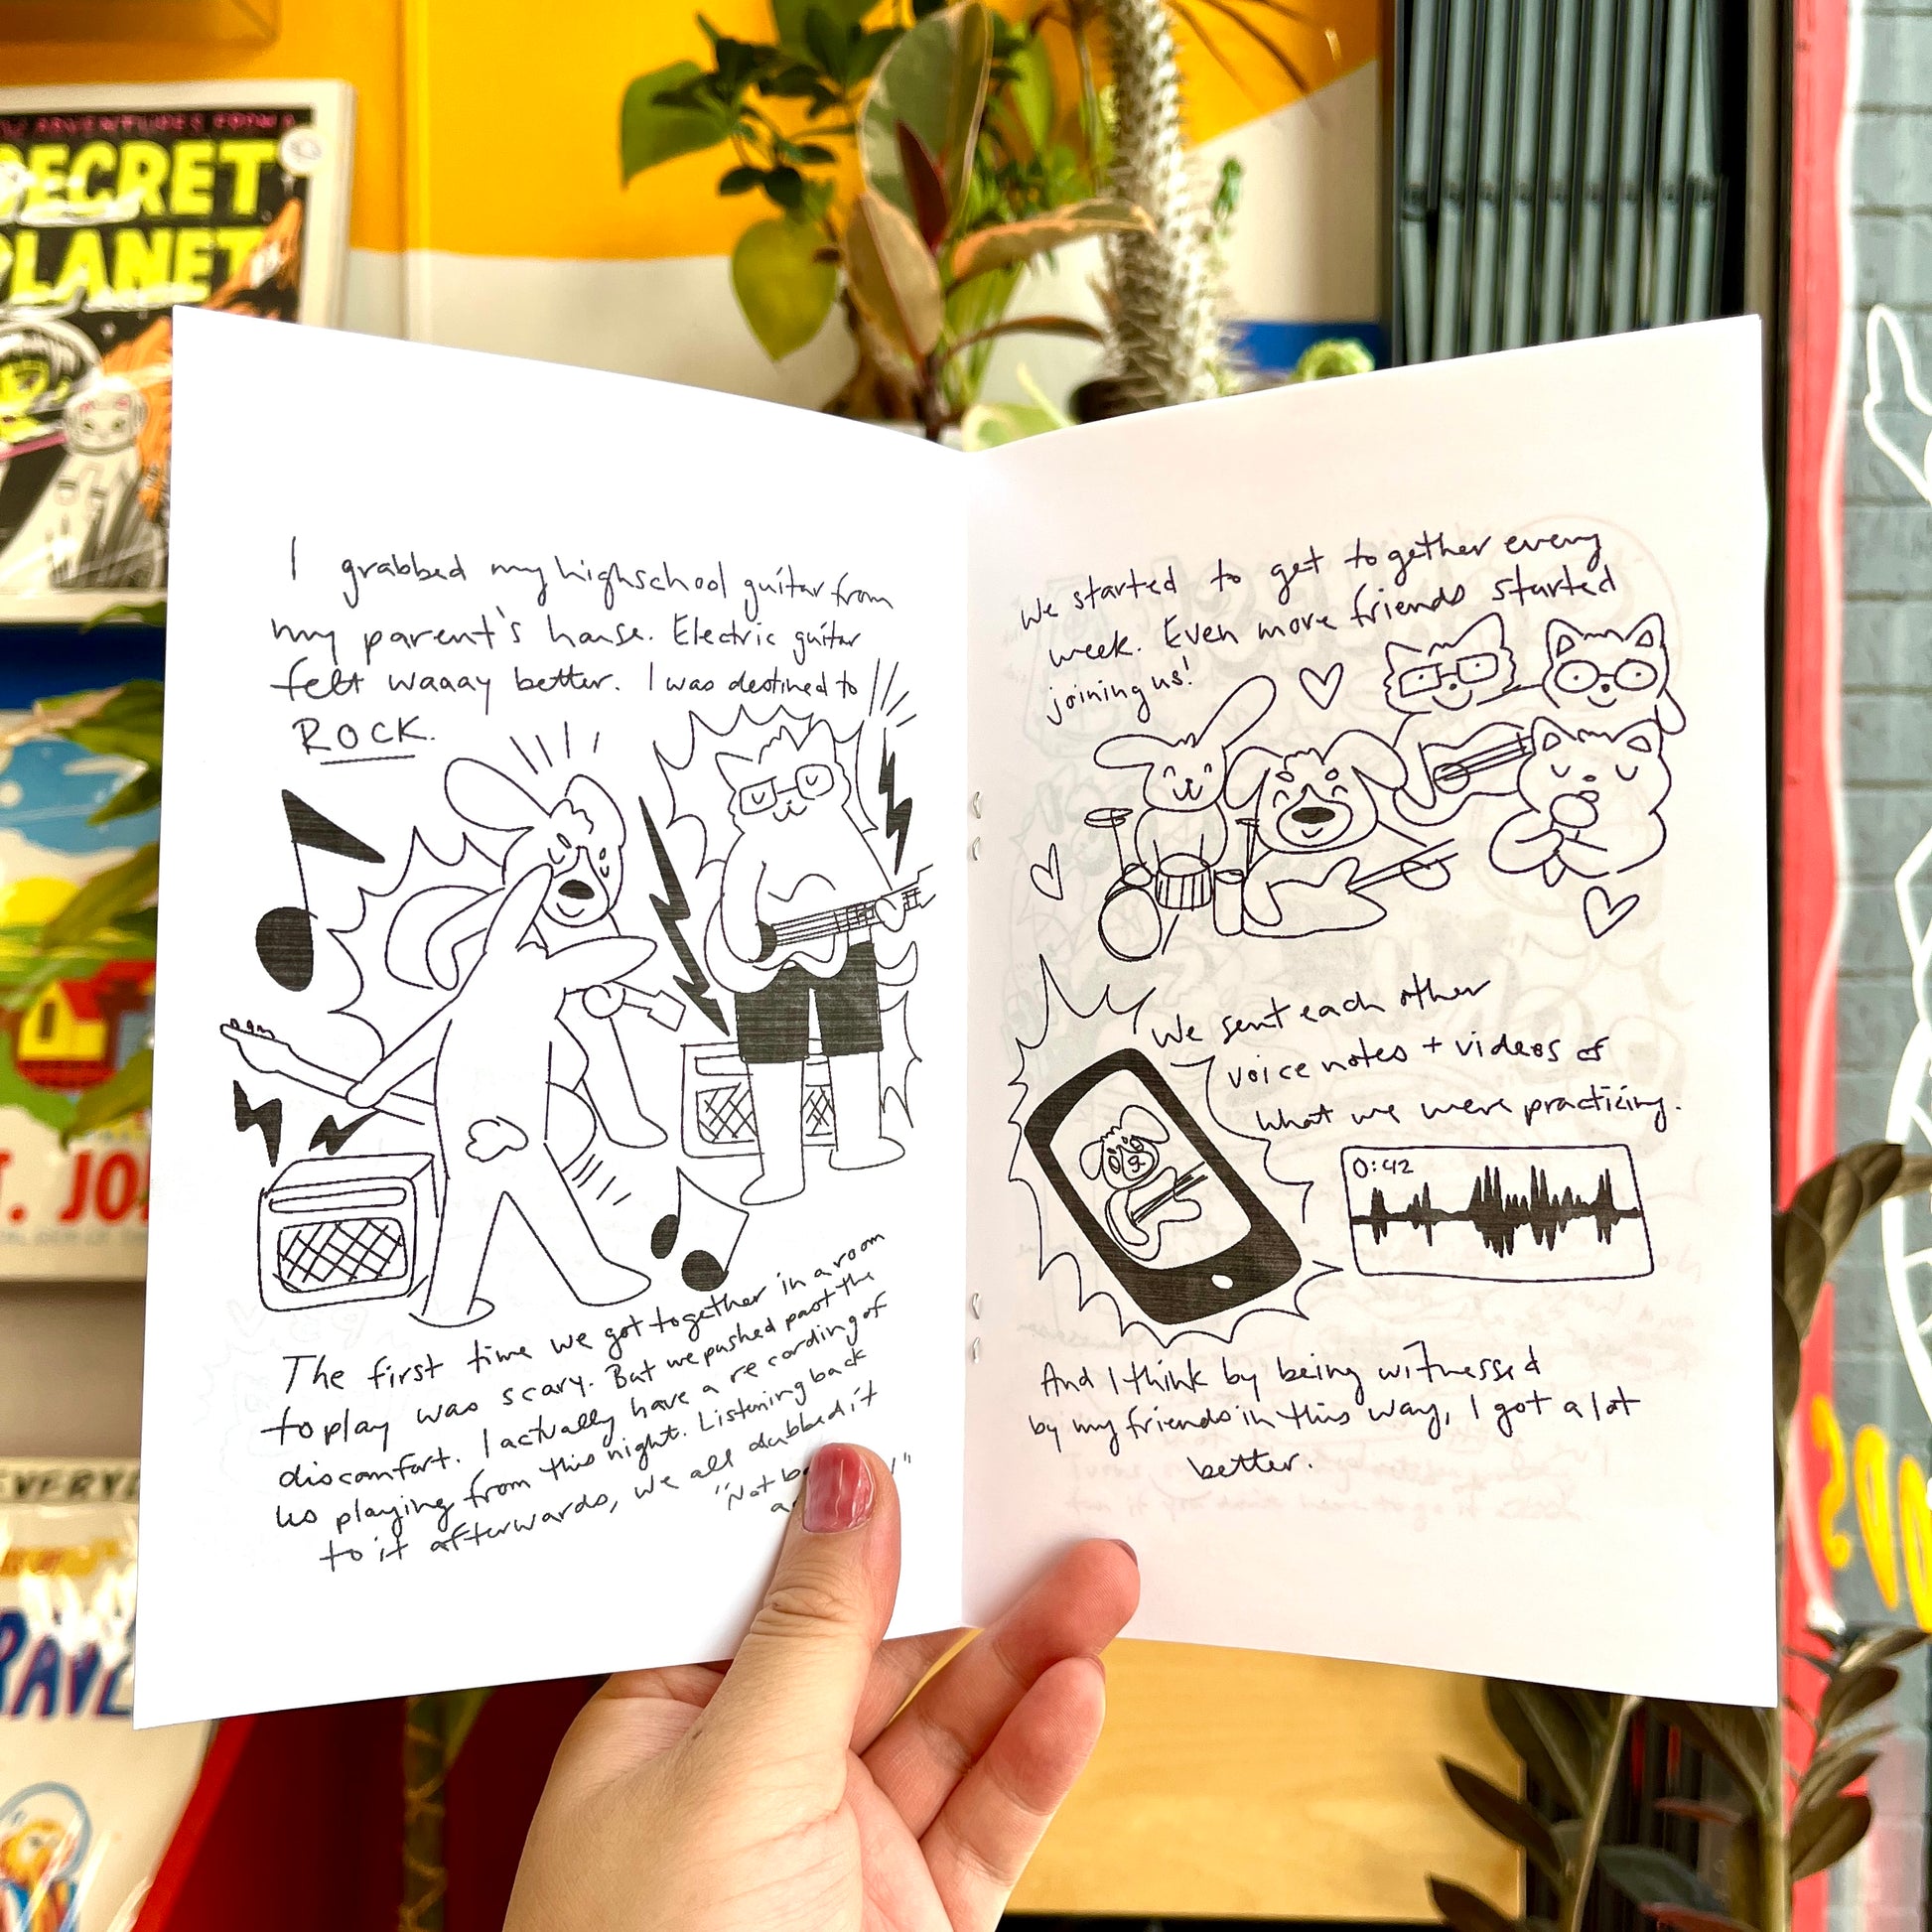 ADVENTURES FROM A
SECRET
PLANET
I grabbed my highschool guitar from
my parent's house. Electric guitar
felt waaay better. I was destined to
ROCK.
The first time we got together in a room
to play was scary. But we pushed past the
discomfort. I actually have a recording of
us playing from this night. Listening back
to it afterwards, we all dubbed it
"Not
We started to get together every
week. Even more friends started
joining us!
We sent each other
voice notes + videos of
what we were practicing.
0:42
And I think by being witnessed
by my friends in this way, I got a lot
better.
T. JO
EVERYD